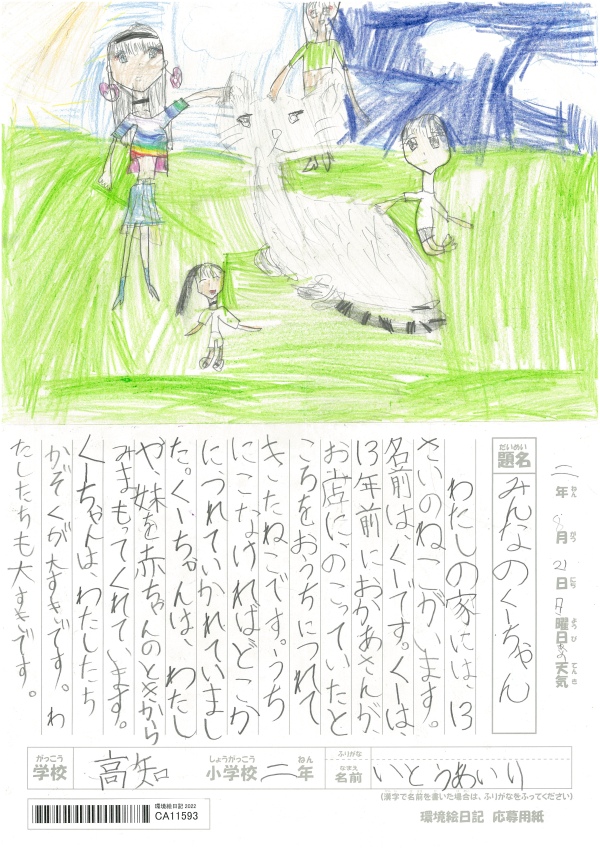 二年 8月21日 月曜日 あめ天気
ねん がつ にち ようび てんき
だいめい
題名 みんなのくーちゃん
わたしの家には、13
さいのねこがいます。
名前は、くーです。くーは、
13年前におかあさんが、
お店にのこっていたと
ころをおうちにつれて
きたねこです。うち
にこなければどこか
につれていかれていまし
た。くーちゃんは、わたし
や、妹を赤ちゃんのときから
みまもってくれています。
くーちゃんは、わたしたち
かぞくが大すきです。わ
たしたちも大すきです。
がっこう しょうがっこう ねん ふりがな
学校 高知 小学校 二年 なまえ 名前 いとうあいり
(漢字で名前を書いた場合は、ふりがなをふってください)
環境絵日記 2022
CA11593
環境絵日記 応募用紙